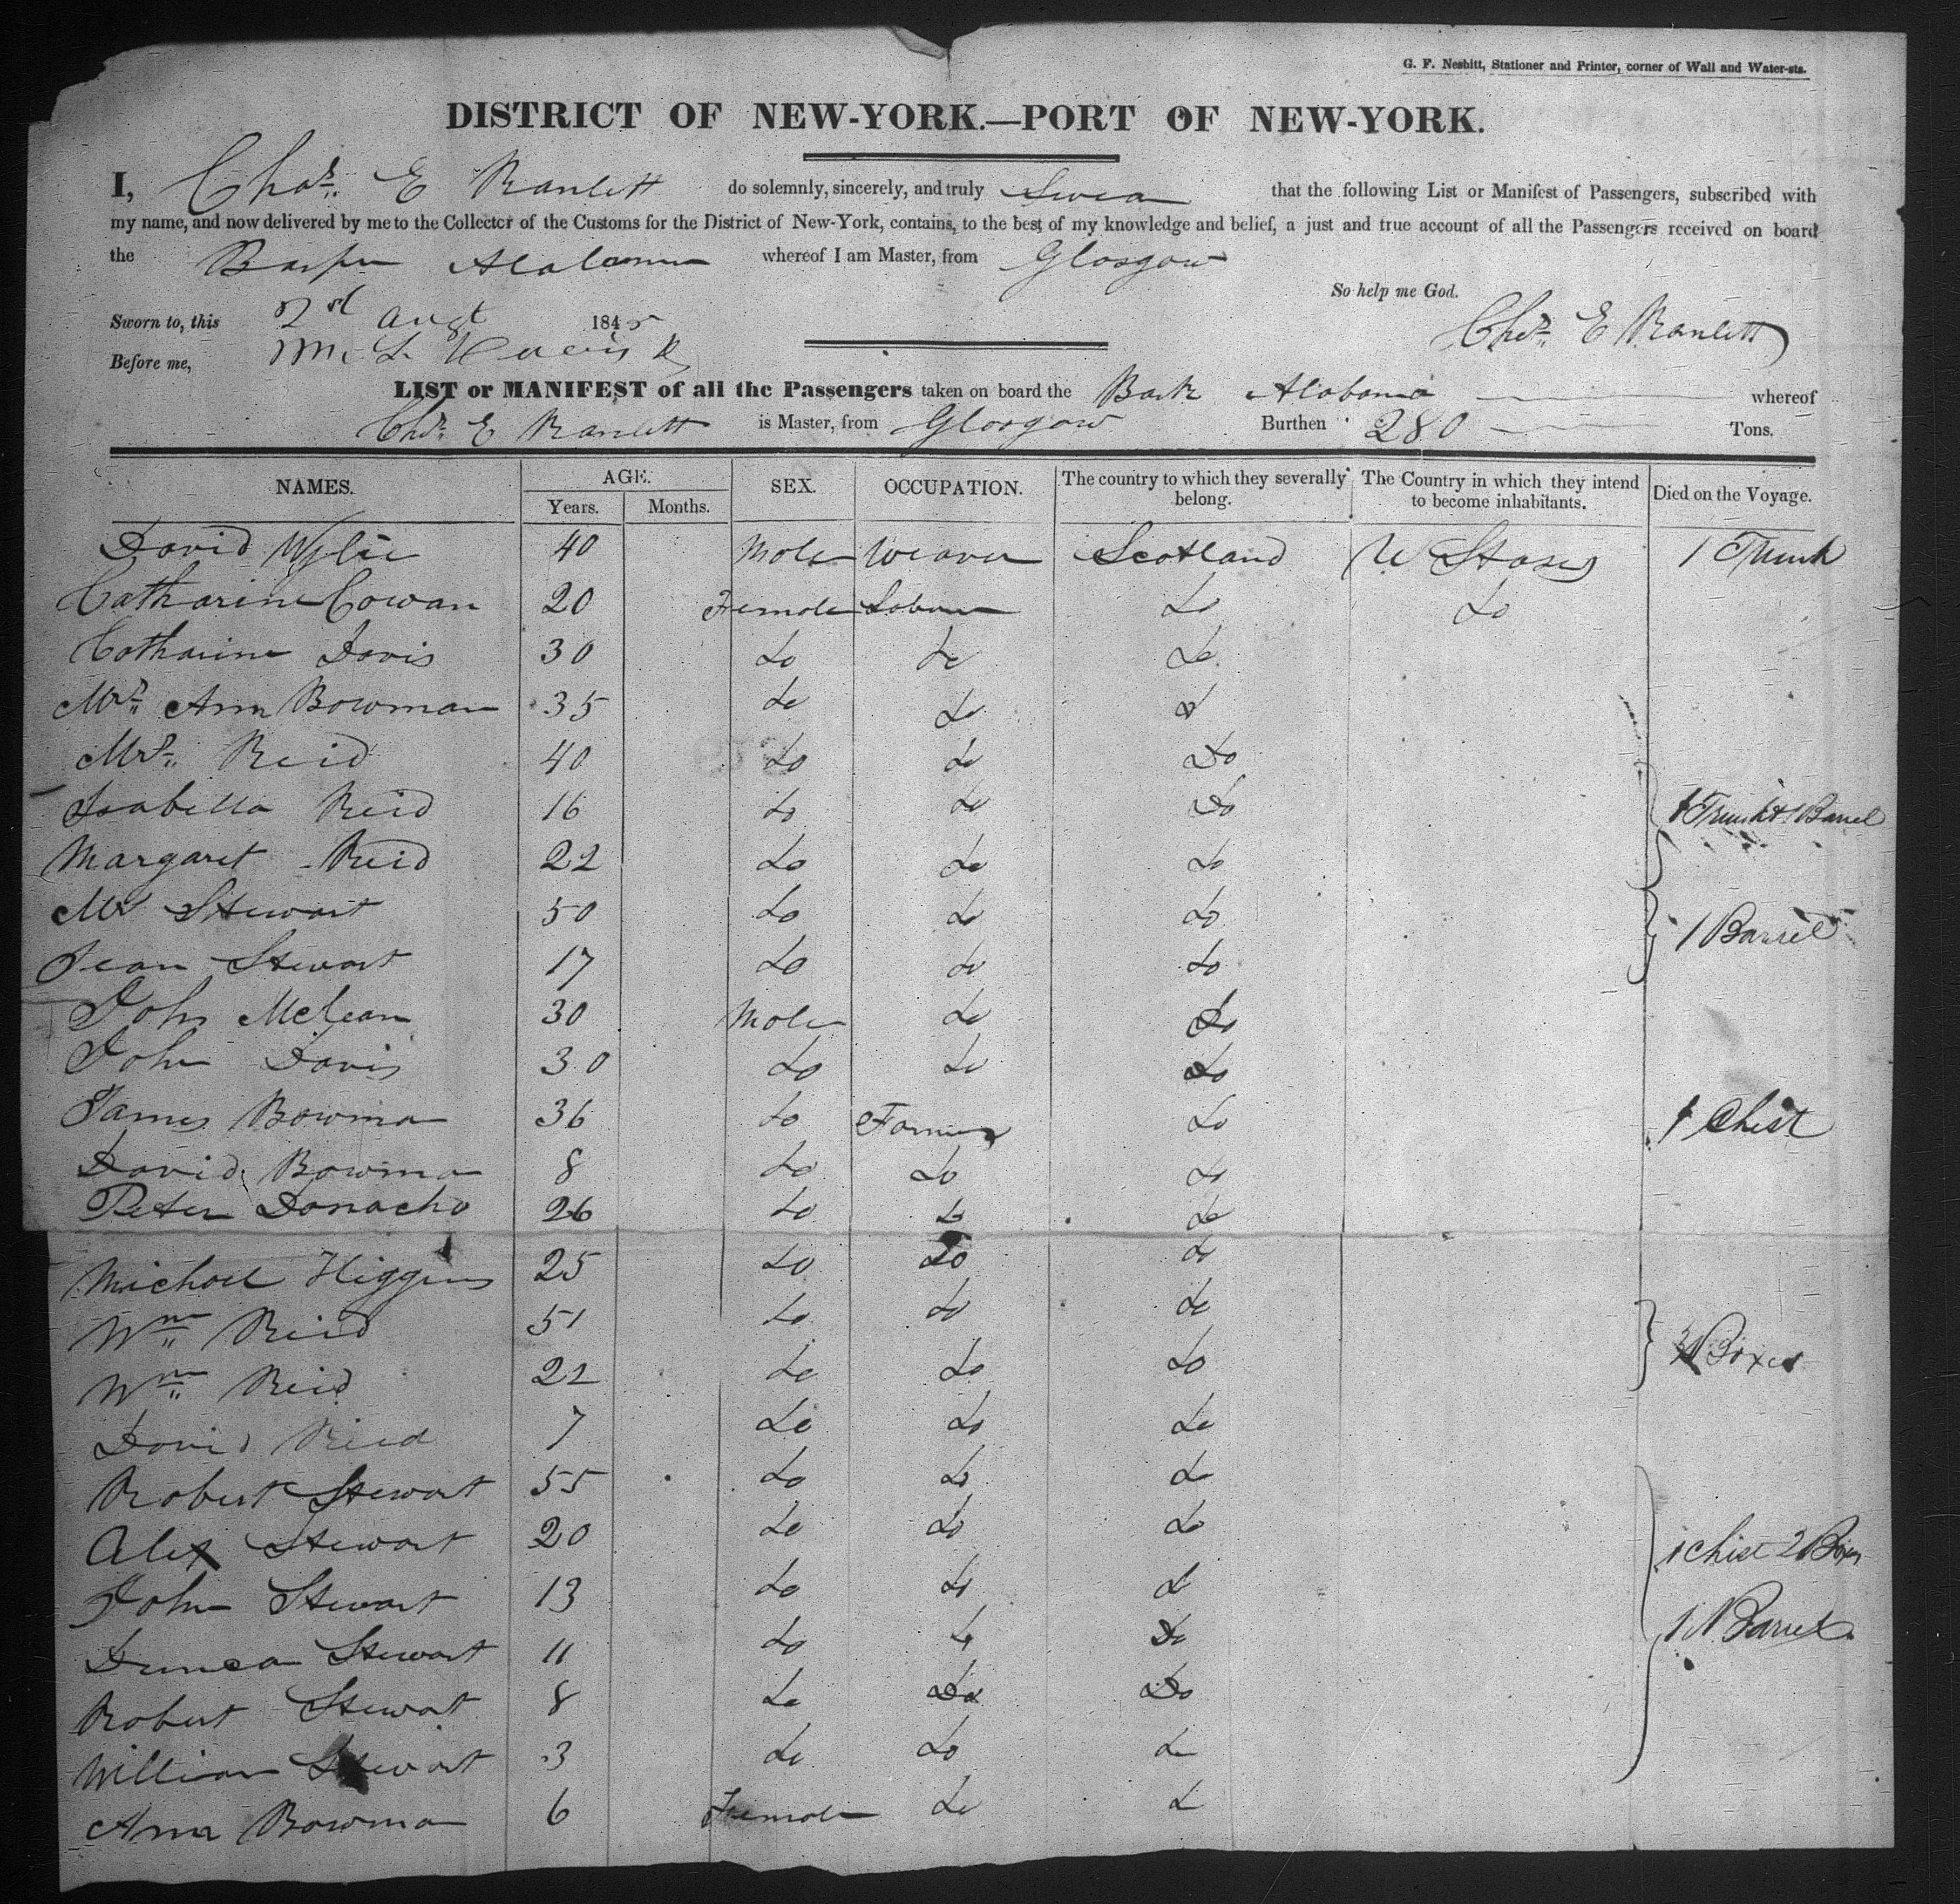 G. F. Nesbitt, Stationer and Printer, corner of Wall and Water-sts.
DISTRICT OF NEW-YORK.—PORT OF NEW-YORK.
I, Chas. E Ranlett do solemnly, sincerely, and truly Swear that the following List or Manifest of Passengers, subscribed with
my name, and now delivered by me to the Collector of the Customs for the District of New-York, contains, to the best of my knowledge and belief, a just and true account of all the Passengers received on board
the Alabama whereof I am Master, from Glasgow
So help me God.
Sworn to, this 2nd Augt 1845 Chas. E Ranlett
Before me,
LIST or MANIFEST of all the Passengers taken on board the Bark Alabama whereof
Chas. E Ranlett is Master, from Glasgow Burthen 280 Tons.
NAMES. AGE. SEX. OCCUPATION. The country to which they severally belong. The Country in which they intend to become inhabitants. Died on the Voyage.
Years. Months.
David Wylie 40 Male Weaver Scotland U States 1 Trunk
Catharine Cowan 20 Female Labour Do Do
Catharine Davis 30 Do Do Do
Mrs. Ann Bowman 35 Do Do Do
Mrs. Reid 40 Do Do Do
Isabella Reid 16 Do Do Do 1 Trunk & 1 Barrel
Margaret Reid 22 Do Do Do
Mrs Stewart 50 Do Do Do 1 Barrel
Jean Stewart 17 Do Do Do
John McLean 30 Male Do Do
John Davis 30 Do Do Do
James Bowman 36 Do Farmer Do 1 Chest
David Bowman 8 Do Do Do
Peter Donacho 26 Do Do Do
Michael Higgins 25 Do Do Do
Wm Reid 51 Do Do Do
Wm Reid 22 Do Do Do Boxes
David Reid 7 Do Do Do
Robert Stewart 55 Do Do Do
Alex Stewart 20 Do Do Do 1 Chest 2 Boxes
John Stewart 13 Do Do Do
Duncan Stewart 11 Do Do Do 1 Barrel
Robert Stewart 8 Do Do Do
William Stewart 3 Do Do Do
Ann Bowman 6 Female Do Do